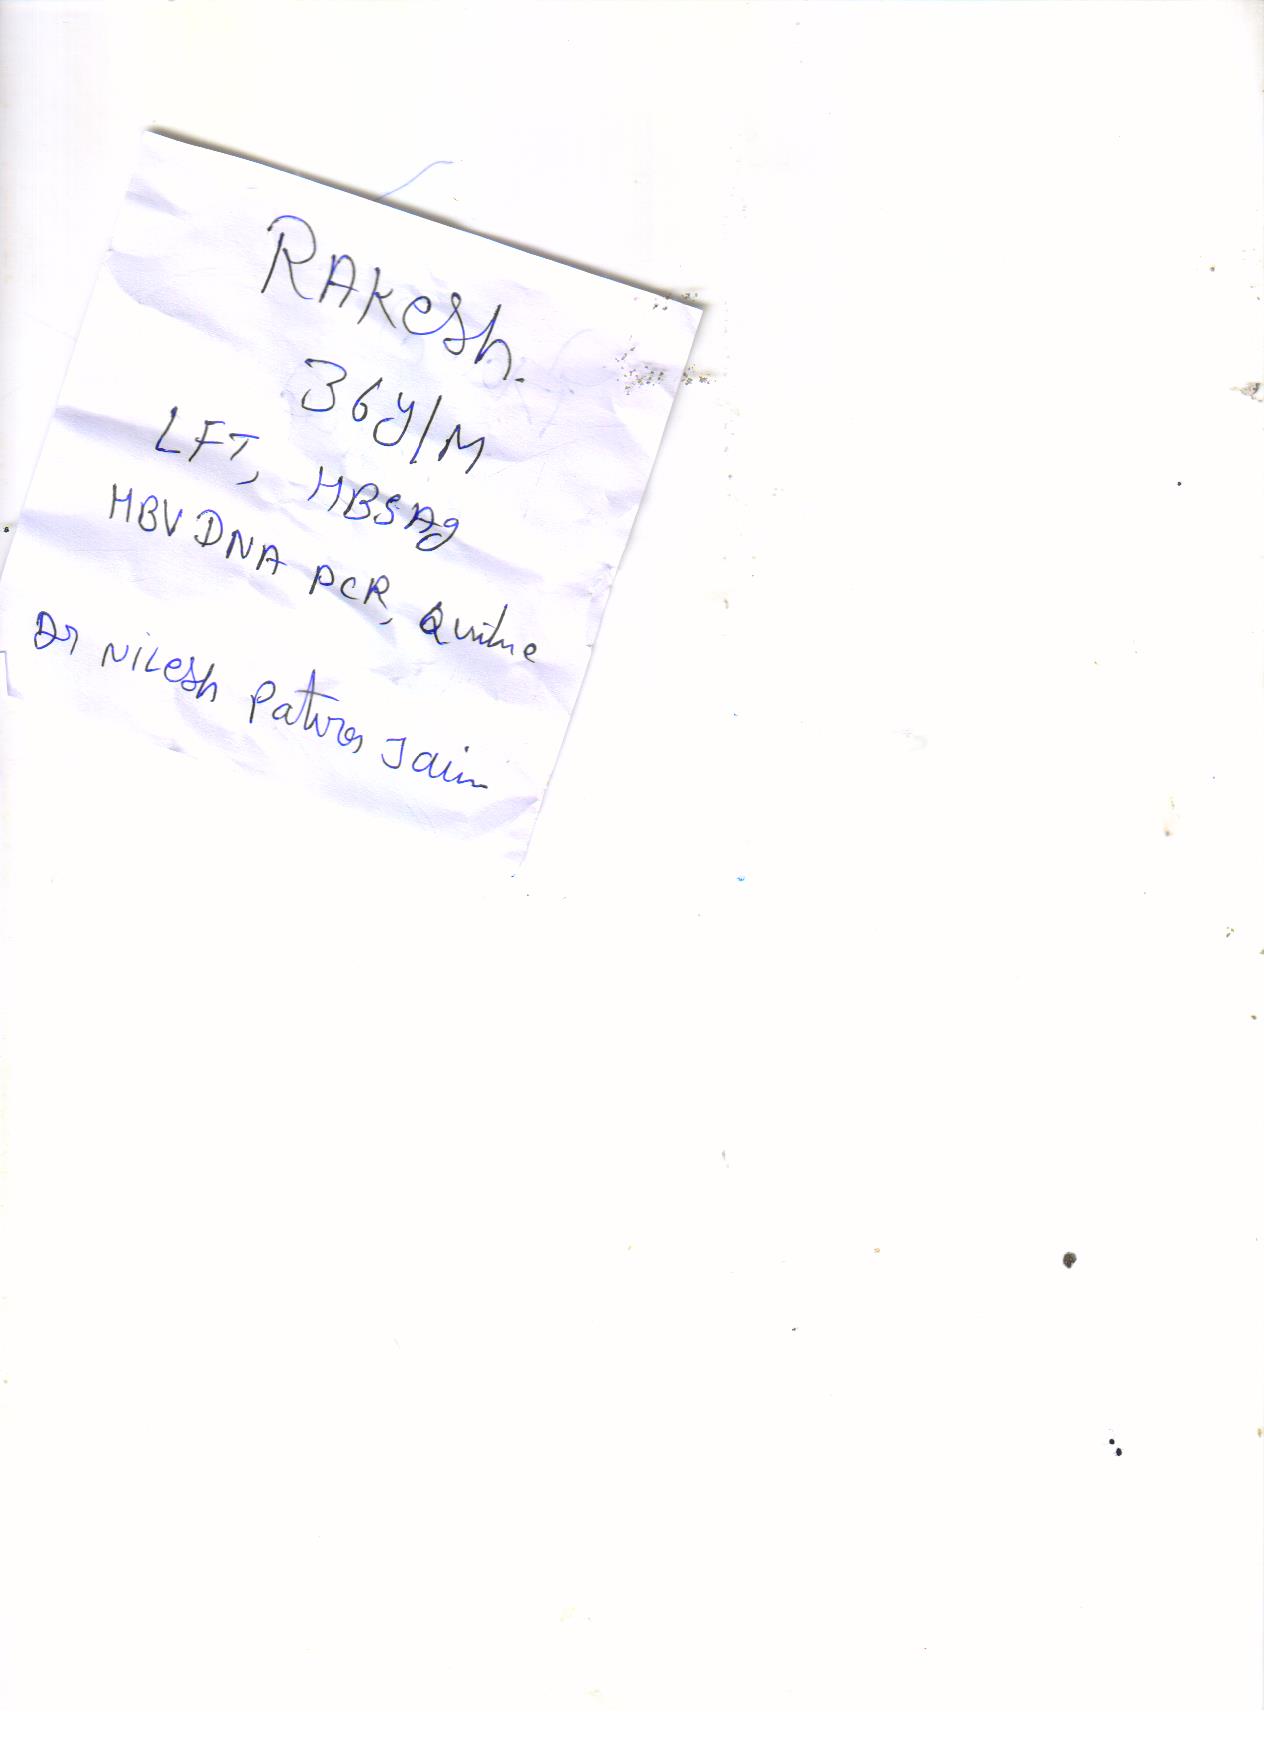 RAKesh.
36y/M
LFT, HBSAg
HBV DNA PCR,
Dr NILesh Jain